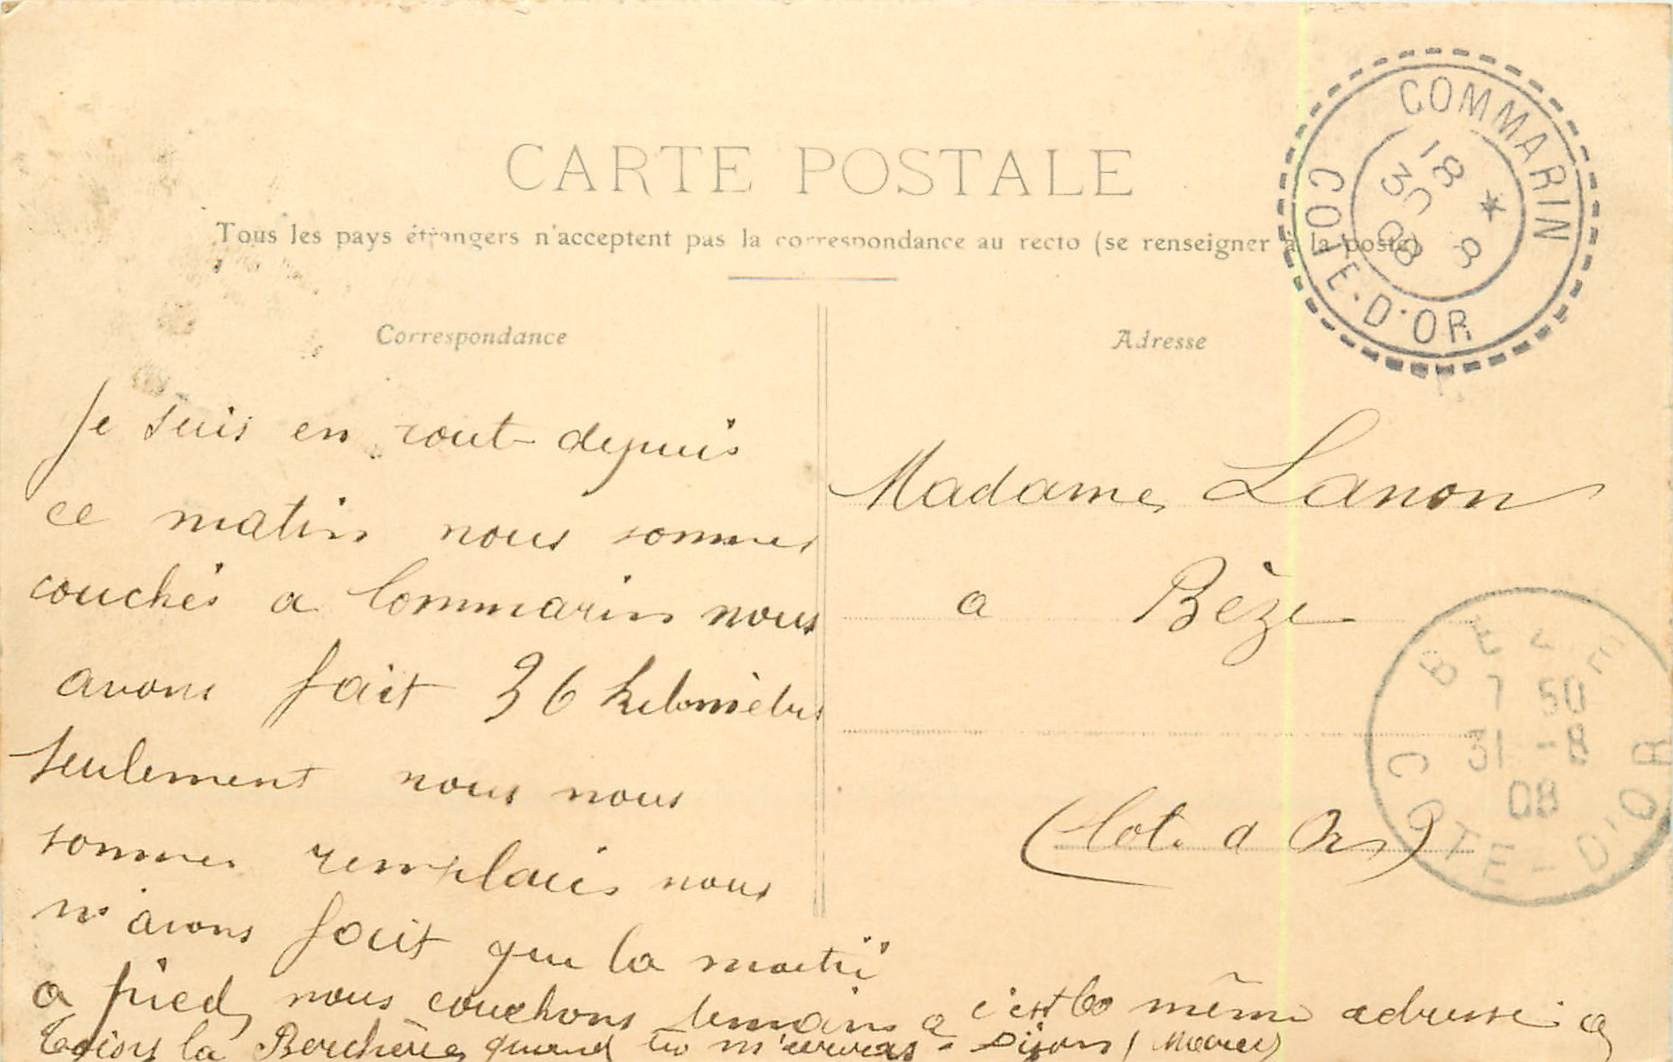 CARTE POSTALE
Tous les pays étrangers n'acceptent pas la correspondance au recto (se renseigner à la poste)
Correspondance
Je suis en rout depuis
ce matin nous sommes
couchés a Commarin nous
avons fait 36 kilomètres
seulement nous nous
sommes remplacés nous
n'avons fait que la moitié
a pied nous couchons demain a
Thoisy la Berchère quand tu m'écriras
c'est la même adresse a
Dijon
Adresse
Madame Lanon
a Bèze
(Cote d Or)
COMMARIN
18 *
30 8
08
COTE-D'OR
BEZE
7 50
31 -8
08
COTE-D'OR